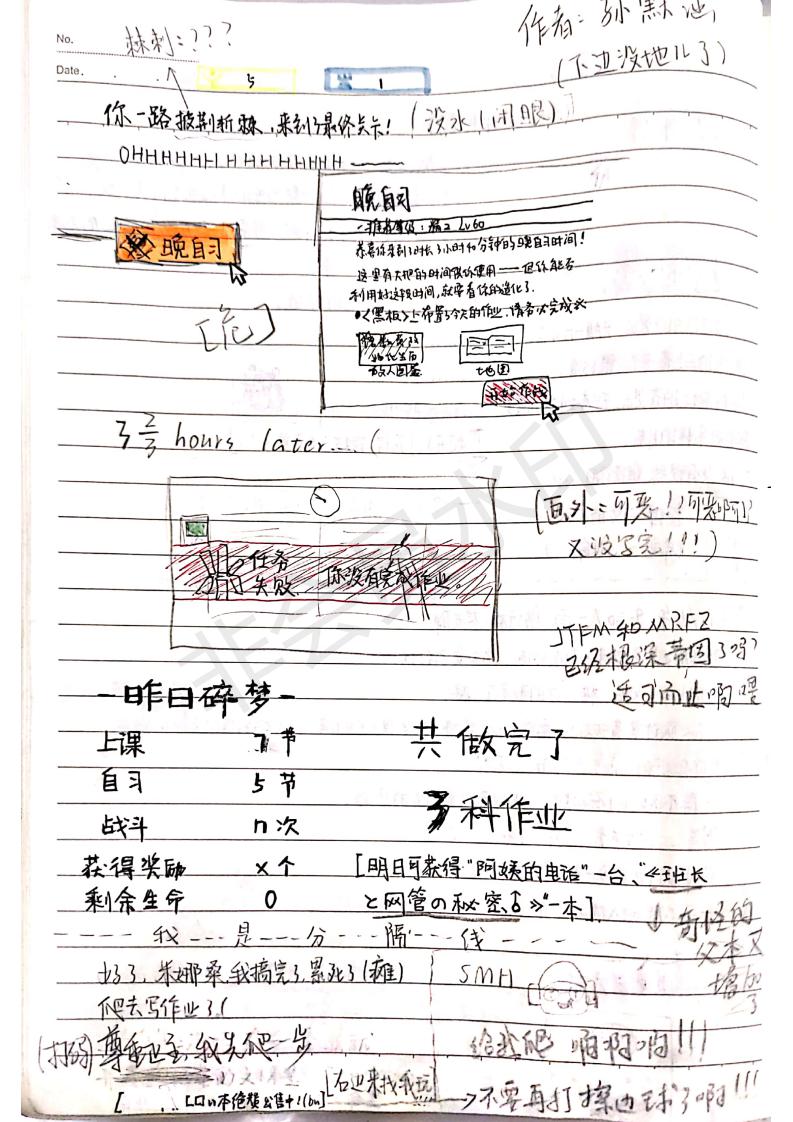 No.
棘刺:???
作者:孙默涵
(下边没地儿了)
Date.
5
1
你一路披荆斩棘,来到了最终关卡!(没水(闭眼)
OHHHHHHHHHHHHHH——
晚自习
晚自习
恭喜你来到了时长3小时40分钟的晚自习时间!
这里有大把的时间供你使用——但你能否
利用好这段时间,就要看你的造化了.
<黑板>上布置了今天的作业,请务必完成
敌人图鉴
地图
开始作战
[危]
3 2/3 hours later....(
(画外:可恶!!可恶啊!
又没写完!!!)
任务
失败
你没有完成作业。
JTFM和MRFZ
已经根深蒂固了吗?
适可而止啊喂
-昨日碎梦-
上课 7节
共做完了
自习 5节
3科作业
战斗 n次
获得奖励 x个
[明日可获得"阿姨的电话"一台、"≪班长
剩余生命 0
と网管の秘密≫"一本].
↓奇怪的
父本又
增加
了
我是分隔线
好了,米娜桑,我搞完了,累死了(瘫)
SMH
爬去写作业了(
(打码)
我先爬一步
给我爬 啊啊啊!!!
[右边来找我玩]
→不要再打擦边球了啊!!!